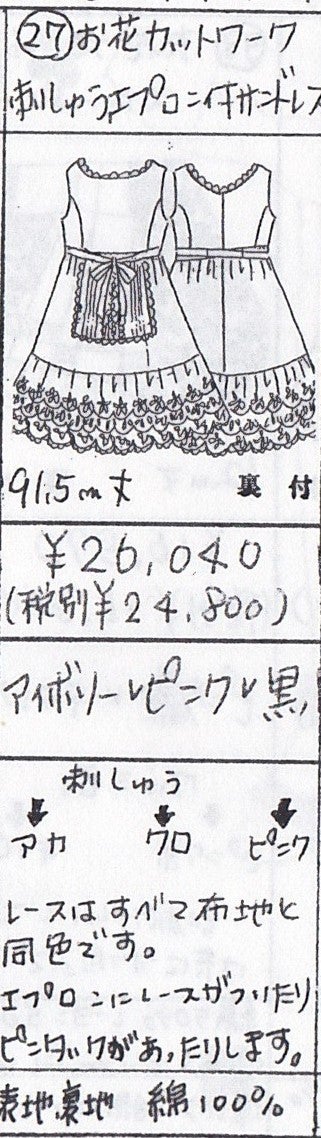 ㉗お花カットワーク
刺しゅうエプロン付サンドレス
91.5cm丈 裏付
¥26,040
(税別¥24,800)
アイボリー、ピンク、黒
刺しゅう
↓ ↓ ↓
アカ クロ ピンク
レースはすべて布地と
同色です。
エプロンにレースがついたり
ピンタックがあったりします。
表地裏地 綿100%